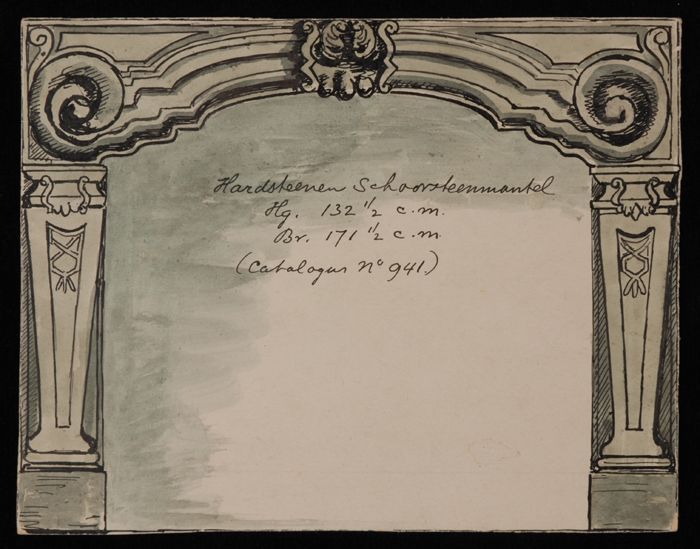 Hardsteenen Schoorsteenmantel
Hg. 132 1/2 c.m.
Br. 171 1/2 c.m.
(Catalogus No 941.)